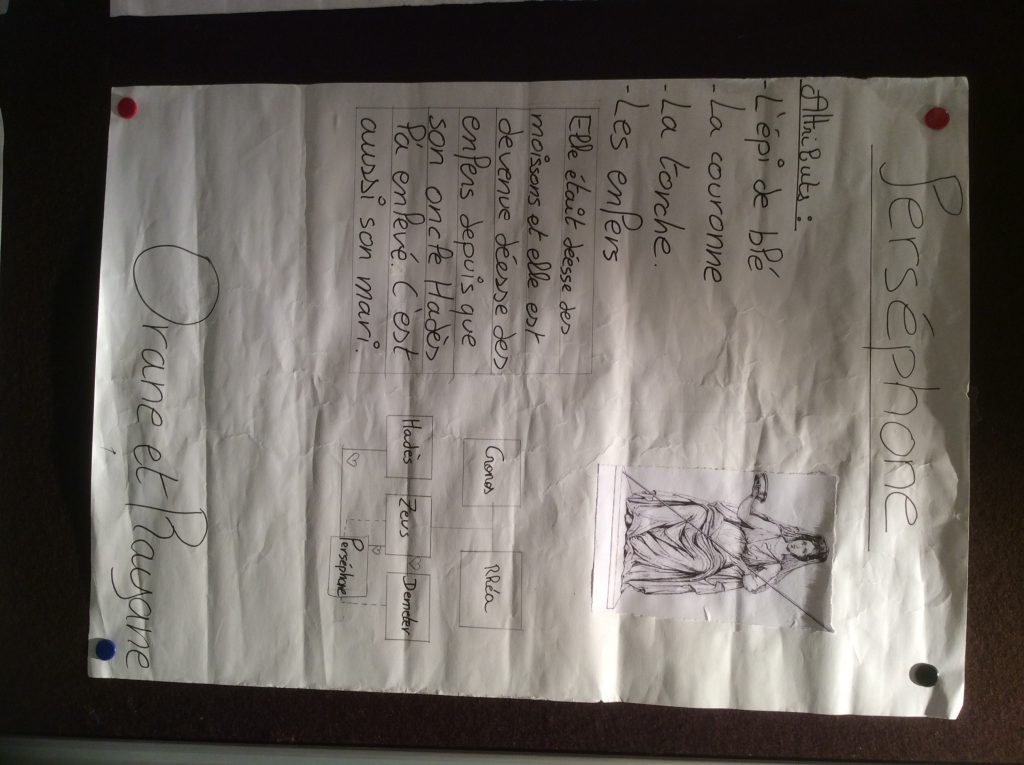 Perséphone
Attributs :
- L'épi de blé
- La couronne
- La torche.
- Les enfers
Elle était déesse des
moissons et elle est
devenue déesse des
enfers depuis que
son oncle Hadès
l'a enlevé. C'est
aussi son mari.
Cronos
Rhéa
Hadès
Zeus
Demeter
Perséphone
Orane et Rayane